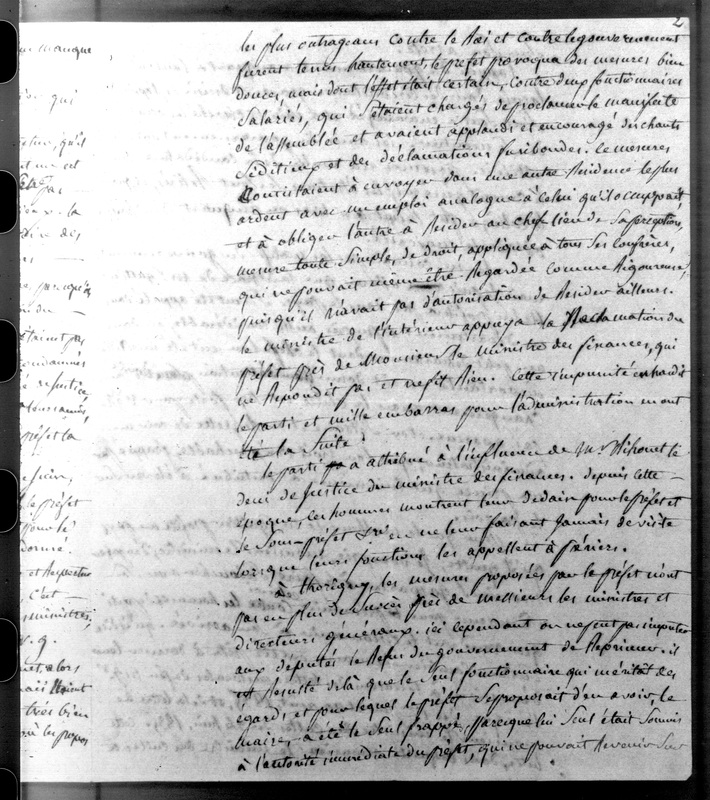 2
les plus outrageans contre le Roi et contre le gouvernement
furent tenus hautement, le préfet provoqua des mesures bien
douces, mais dont l'effet était certain, contre deux fonctionnaires
salariés, qui s'étaient chargés de proclamer le manifeste
de l'assemblée et avaient applaudi et encouragé des chants
séditieux et des déclamations furibondes. Ce mesures
Consistaient à envoyer dans une autre Résidence le plus
ardent avec un emploi analogue à celui qu'il occupait,
et à obliger l'autre à Résider au chef lieu de sa perception,
mesure toute simple, de droit, appliquée à tous ses confrères,
qui ne pouvait même être Regardée comme Rigoureuse
puisqu'il n'avait pas d'autorisation de Résider ailleurs.
le ministre de l'intérieur appuya la Réclamation du
préfet près de Monsieur le ministre des finances, qui
ne Répondit pas et ne fit Rien. Cette impunité enhardit
le parti et mille embarras pour l'administration en ont
été la suite.
le parti a attribué à l'influence de Mr
deni de Justice du ministre des finances. depuis cette
époque, ces hommes montrent leur dédain pour le préfet et
le Sous-préfet en ne leur faisant Jamais de visite
lorsque leurs fonctions les appellent à périers.
à thorigny, les mesures proposées par le préfet n'ont
pas eu plus de succès près de messieurs les ministres et
directeurs généraux. ici cependant on ne peut pas imputer
aux députés le Refus du gouvernement de Réprimer. il
est Résulté de là que le seul fonctionnaire qui méritât des
égards et pour lequel le préfet se proposait d'en avoir, le
maire, a été le seul frappé, parceque lui seul était soumis
à l'autorité immédiate du préfet, qui ne pouvait Revenir sur
manque
qui
qu'il
pas
la
des
pas
condamnés
Justice
préfet la
le préfet
pour le
et
C'est
ministres,
alors
bien